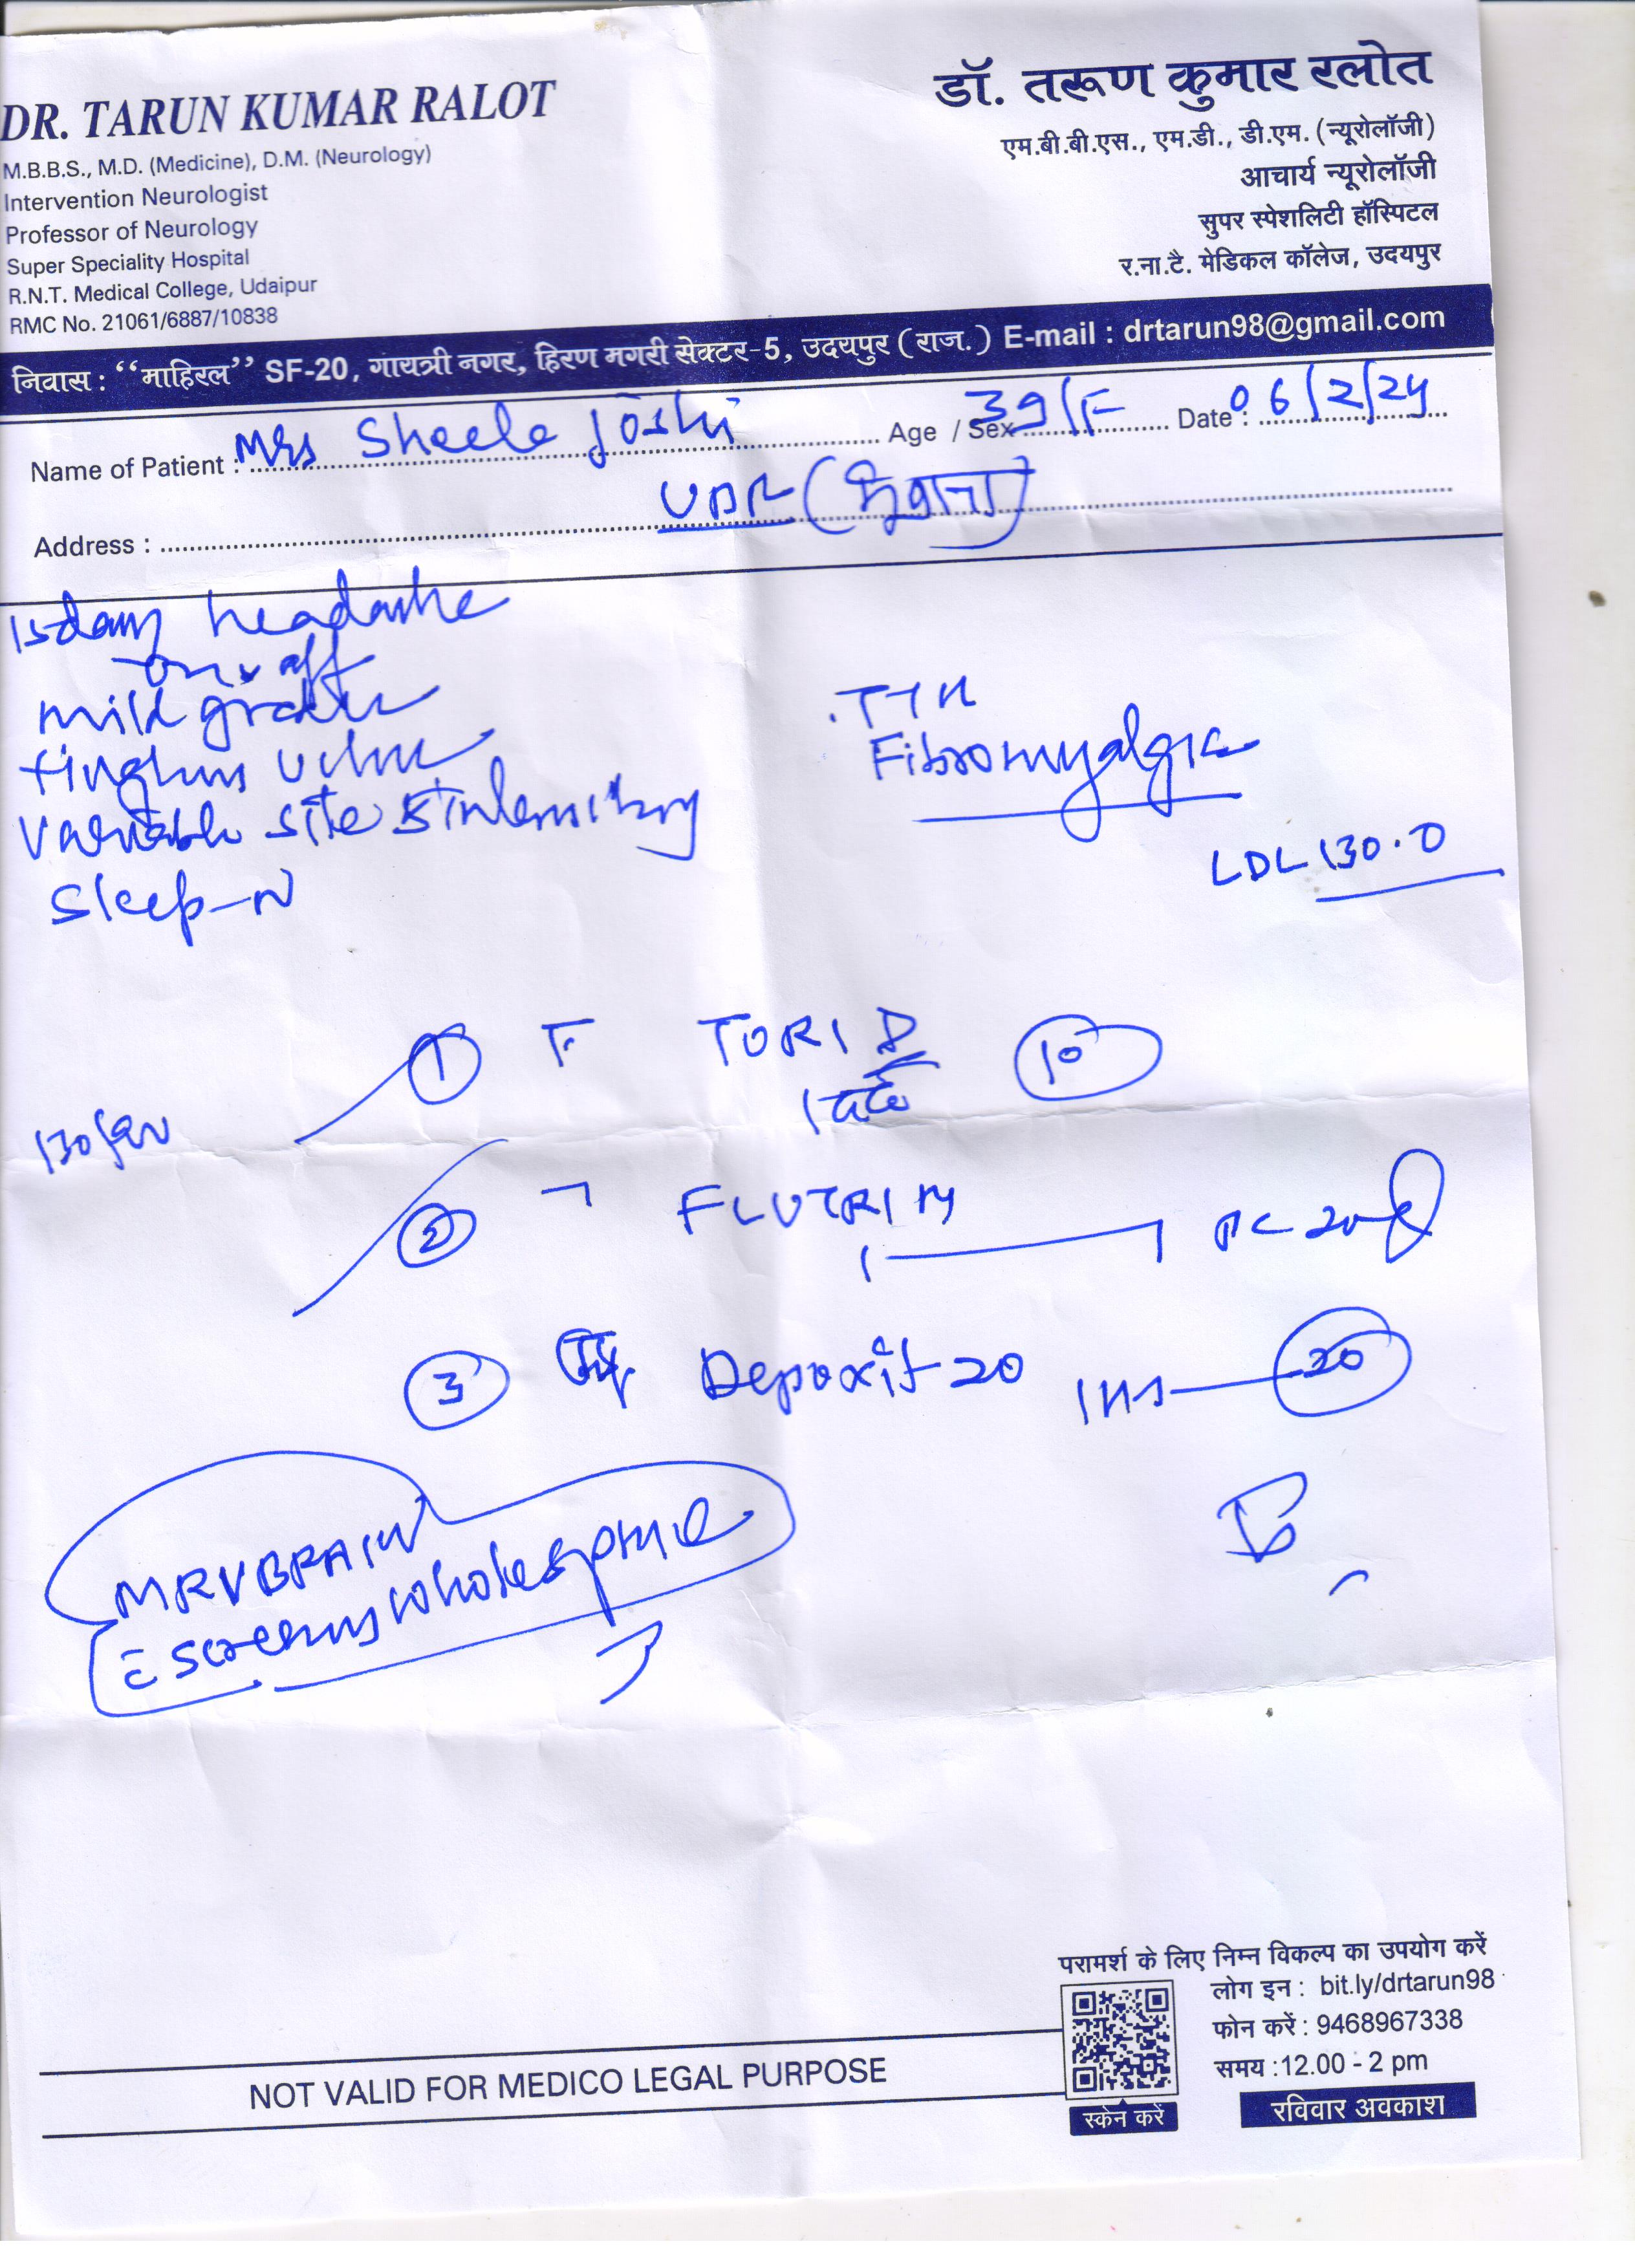 DR. TARUN KUMAR RALOT
M.B.B.S., M.D. (Medicine), D.M. (Neurology)
Intervention Neurologist
Professor of Neurology
Super Speciality Hospital
R.N.T. Medical College, Udaipur
RMC No. 21061/6887/10838
डॉ. तरूण कुमार रलोत
एम.बी.बी.एस., एम.डी., डी.एम. (न्यूरोलॉजी)
आचार्य न्यूरोलॉजी
सुपर स्पेशलिटी हॉस्पिटल
र.ना.टै. मेडिकल कॉलेज, उदयपुर
निवास : “माहिरल” SF-20, गायत्री नगर, हिरण मगरी सेक्टर-5, उदयपुर (राज.) E-mail : drtarun98@gmail.com
Name of Patient : Mrs Sheela Joshi Age / Sex 39/F Date : 06/2/24
Address : UDR
15 day headache
on & off
mild
variable site & intensity
Sleep-N
TTH
Fibromyalgia
LDL 130.0
1 T. TORID 10
130/80
2 T FLUTRIM
3 Deproxit-20 1HS 20
MRV BRAIN
c̄ screening whole spine
परामर्श के लिए निम्न विकल्प का उपयोग करें
लोग इन : bit.ly/drtarun98
फोन करें : 9468967338
समय :12.00 - 2 pm
रविवार अवकाश
स्केन करें
NOT VALID FOR MEDICO LEGAL PURPOSE